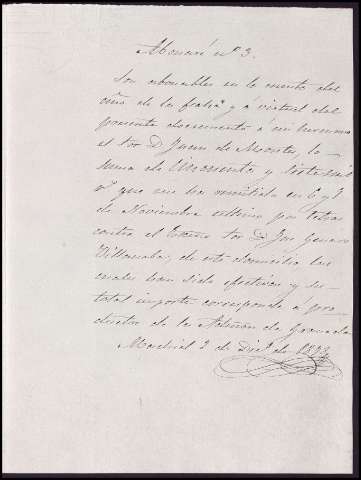 Abonaré nº 3.
Son abonables en la cuenta del
año de la fecha y á virtud del
presente documento á mi hermano
el Sor D. Juan de Montes, la
suma de Cincuenta y siete mil
rˢ que me ha remitido en 6 y 7
de Noviembre último por letras
contra el Excmo Sor D. José Genaro
Villanova, de este domicilio las
cuales han sido efectivas y su
total importe corresponde á pro
ductos de la de Granada
Madrid 2 de Dicᵉ de